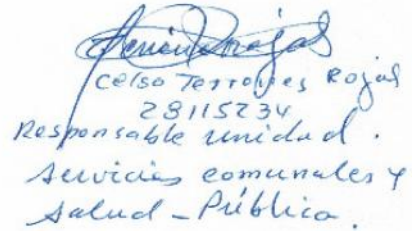 Celso Terrones Rojas
28115234
Responsable unidad.
servicios comunales y
salud - Pública.